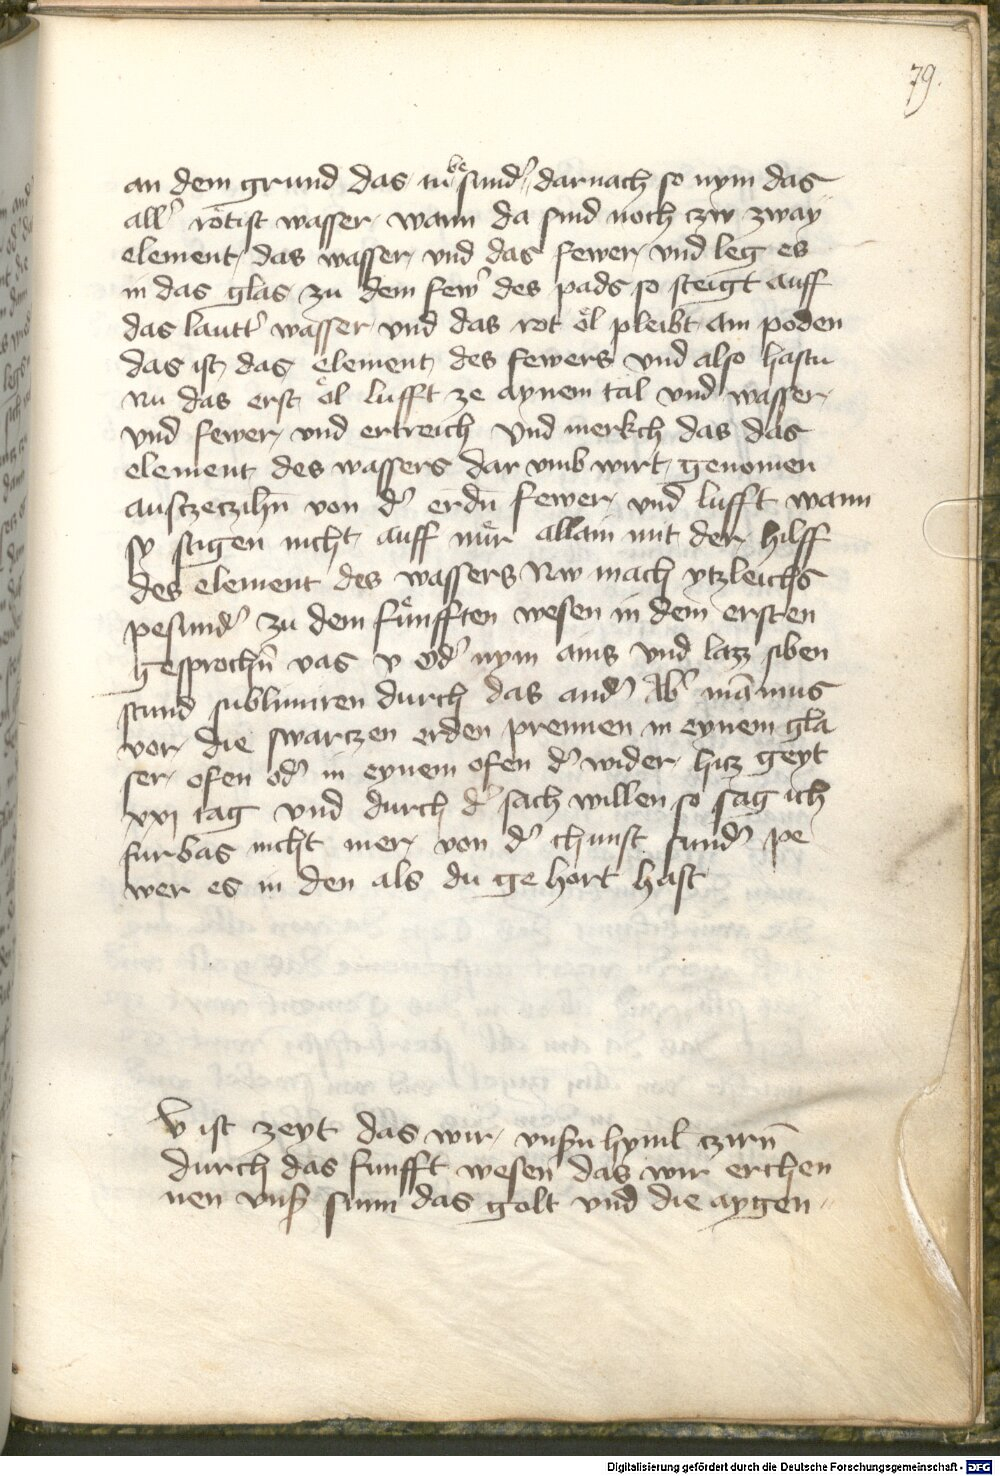 79.
an dem grund das tu besund᷒ darnach so nym das
all᷒ rötist wasser wann da sind noch czw zway
element das wasser vnd das fewer vnd leg es
in das glas zu dem few᷒ des pads so steigt auff
das lautt᷒ wasser vnd das rot öl pleibt am poden
das ist das element des fewers vnd also hastu
nu das erst öl lufft ze aynem tal vnd wasser
vnd fewer vnd ertreich vnd merkch das das
element des wassers dar vmb wirt genomen
ausczeczihn̄ von d᷒ erdn̄ fewer vnd lufft wann
sy stigen nicht auff nur allain mit der hilff
des element des wassers Nw mach ytzleichs
pesund᷒ zu dem fünfften wesen in dem ersten
gesprochn̄ vas v od᷒ nym ains vnd laz siben
stund sublimiren durch das and᷒ Ab᷒ mā mus
vor die swarczen erden prennen in eynem gla
ser ofen od᷒ in eynem ofen d᷒ wider hiz geyt
xxj tag vnd durch d᷒ sach willen so sag ich
furbas nicht mer von d᷒ chunst sund᷒ pe
wer es in den als du ge hort hast
ist zeyt das wir vnsn̄ hyml czirn̄
durch das funfft wesen das wir erchen
nen vns᷒ sunn das golt vnd die aygen〃
Digitalisierung gefördert durch die Deutsche Forschungsgemeinschaft - DFG